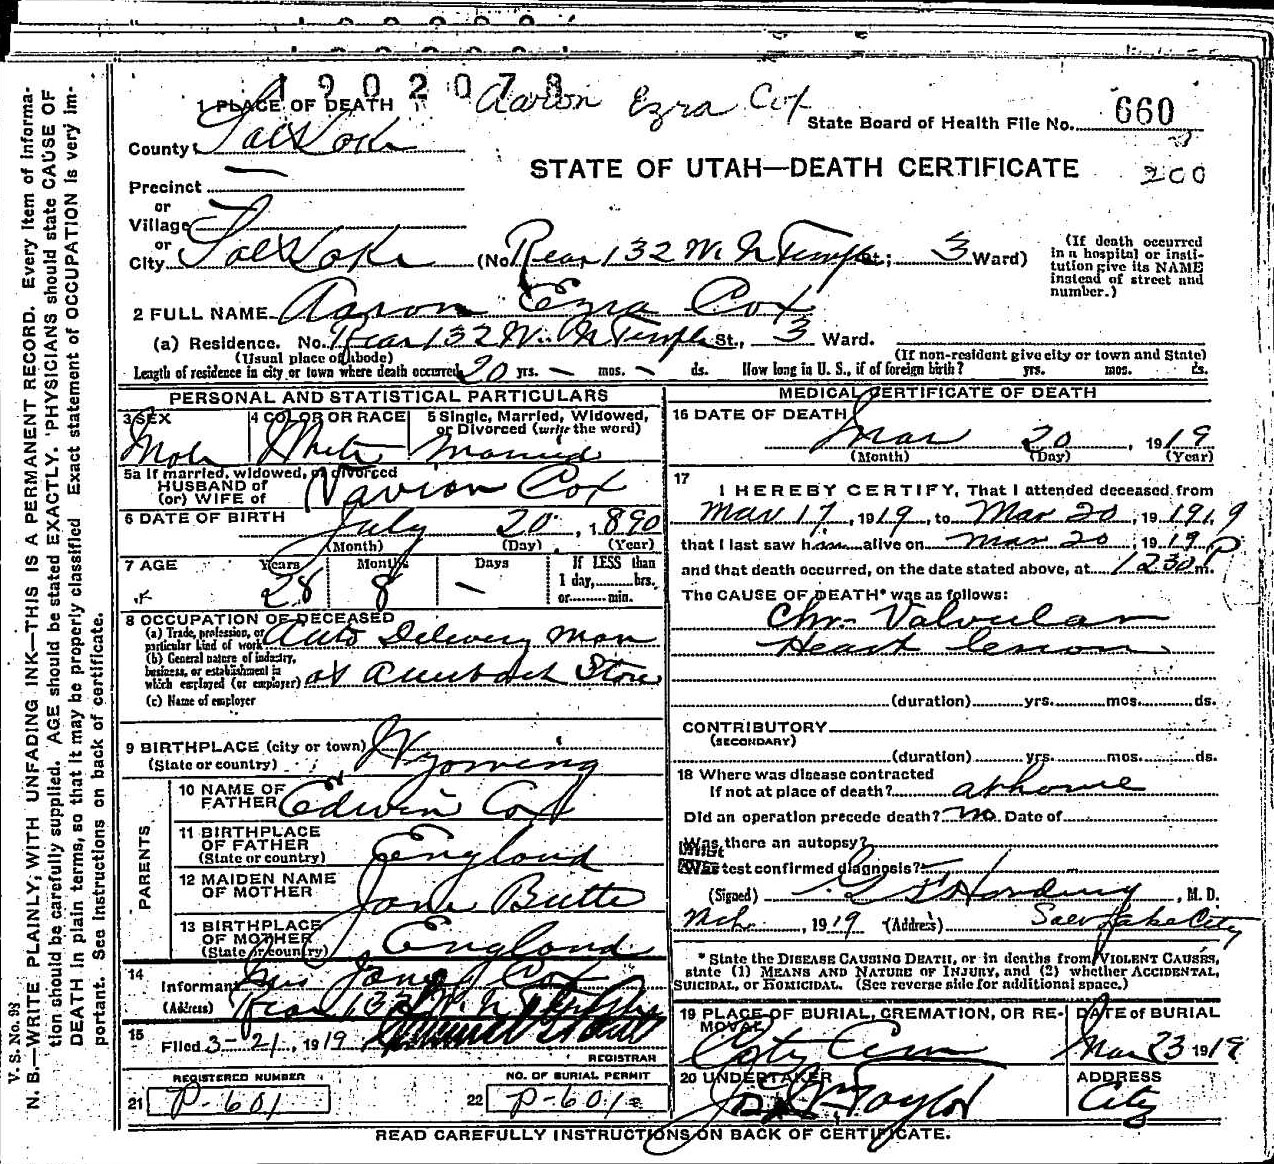 1902078
Aaron Ezra Cox
1 PLACE OF DEATH
State Board of Health File No. 660
County Salt Lake
STATE OF UTAH—DEATH CERTIFICATE
200
Precinct —
or
Village
or
City Salt Lake (No. Rear 132 W. N Temple St.; 3 Ward)
(If death occurred in a hospital or institution give its NAME instead of street and number.)
2 FULL NAME Aaron Ezra Cox
(a) Residence. No. Rear 132 W. N Temple St., 3 Ward.
(Usual place of abode) (If non-resident give city or town and State)
Length of residence in city or town where death occurred 20 yrs. — mos. — ds. How long in U. S., if of foreign birth? yrs. mos. ds.
PERSONAL AND STATISTICAL PARTICULARS
3 SEX 4 COLOR OR RACE 5 Single, Married, Widowed, or Divorced (write the word)
Male White Married
5a If married, widowed, or divorced
HUSBAND of
(or) WIFE of Cox
6 DATE OF BIRTH July 20, 1890
(Month) (Day) (Year)
7 AGE Years Months Days If LESS than
28 8 — 1 day,.....hrs.
or.....min.
8 OCCUPATION OF DECEASED
(a) Trade, profession, or particular kind of work Auto Delivery man
(b) General nature of industry, business, or establishment in which employed (or employer) at Auerbach Store
(c) Name of employer
9 BIRTHPLACE (city or town)
(State or country) Wyoming
PARENTS
10 NAME OF FATHER Edwin Cox
11 BIRTHPLACE OF FATHER (State or country) England
12 MAIDEN NAME OF MOTHER Jane Butte
13 BIRTHPLACE OF MOTHER (State or country) England
14 Informant Mrs Jane Cox
(Address) Rear 132 W. N Temple
15 Filed 3-21, 1919
REGISTRAR
REGISTERED NUMBER NO. OF BURIAL PERMIT
21 P-601 22 P-601
MEDICAL CERTIFICATE OF DEATH
16 DATE OF DEATH
Mar 20, 1919
(Month) (Day) (Year)
17
I HEREBY CERTIFY, That I attended deceased from
Mar 17, 1919, to Mar 20, 1919
that I last saw him alive on Mar 20, 1919
and that death occurred, on the date stated above, at 1230 P m.
The CAUSE OF DEATH* was as follows:
Chr. Valvular
Heart lesion
(duration) yrs. mos. ds.
CONTRIBUTORY
(SECONDARY)
(duration) yrs. mos. ds.
18 Where was disease contracted
If not at place of death? at home
Did an operation precede death? No Date of
Was there an autopsy?
What test confirmed diagnosis?
(Signed) , M. D.
Mch., 1919 (Address) Salt Lake City
*State the DISEASE CAUSING DEATH, or in deaths from VIOLENT CAUSES, state (1) MEANS AND NATURE OF INJURY, and (2) whether ACCIDENTAL, SUICIDAL, or HOMICIDAL. (See reverse side for additional space.)
19 PLACE OF BURIAL, CREMATION, OR REMOVAL DATE OF BURIAL
City Cem Mar 23 1919
20 UNDERTAKER ADDRESS
Jos Wm Taylor City
READ CAREFULLY INSTRUCTIONS ON BACK OF CERTIFICATE.
V. S. No. 98
N. B.—WRITE PLAINLY, WITH UNFADING INK—THIS IS A PERMANENT RECORD. Every item of information should be carefully supplied. AGE should be stated EXACTLY. PHYSICIANS should state CAUSE OF DEATH in plain terms, so that it may be properly classified. Exact statement of OCCUPATION is very important. See instructions on back of certificate.